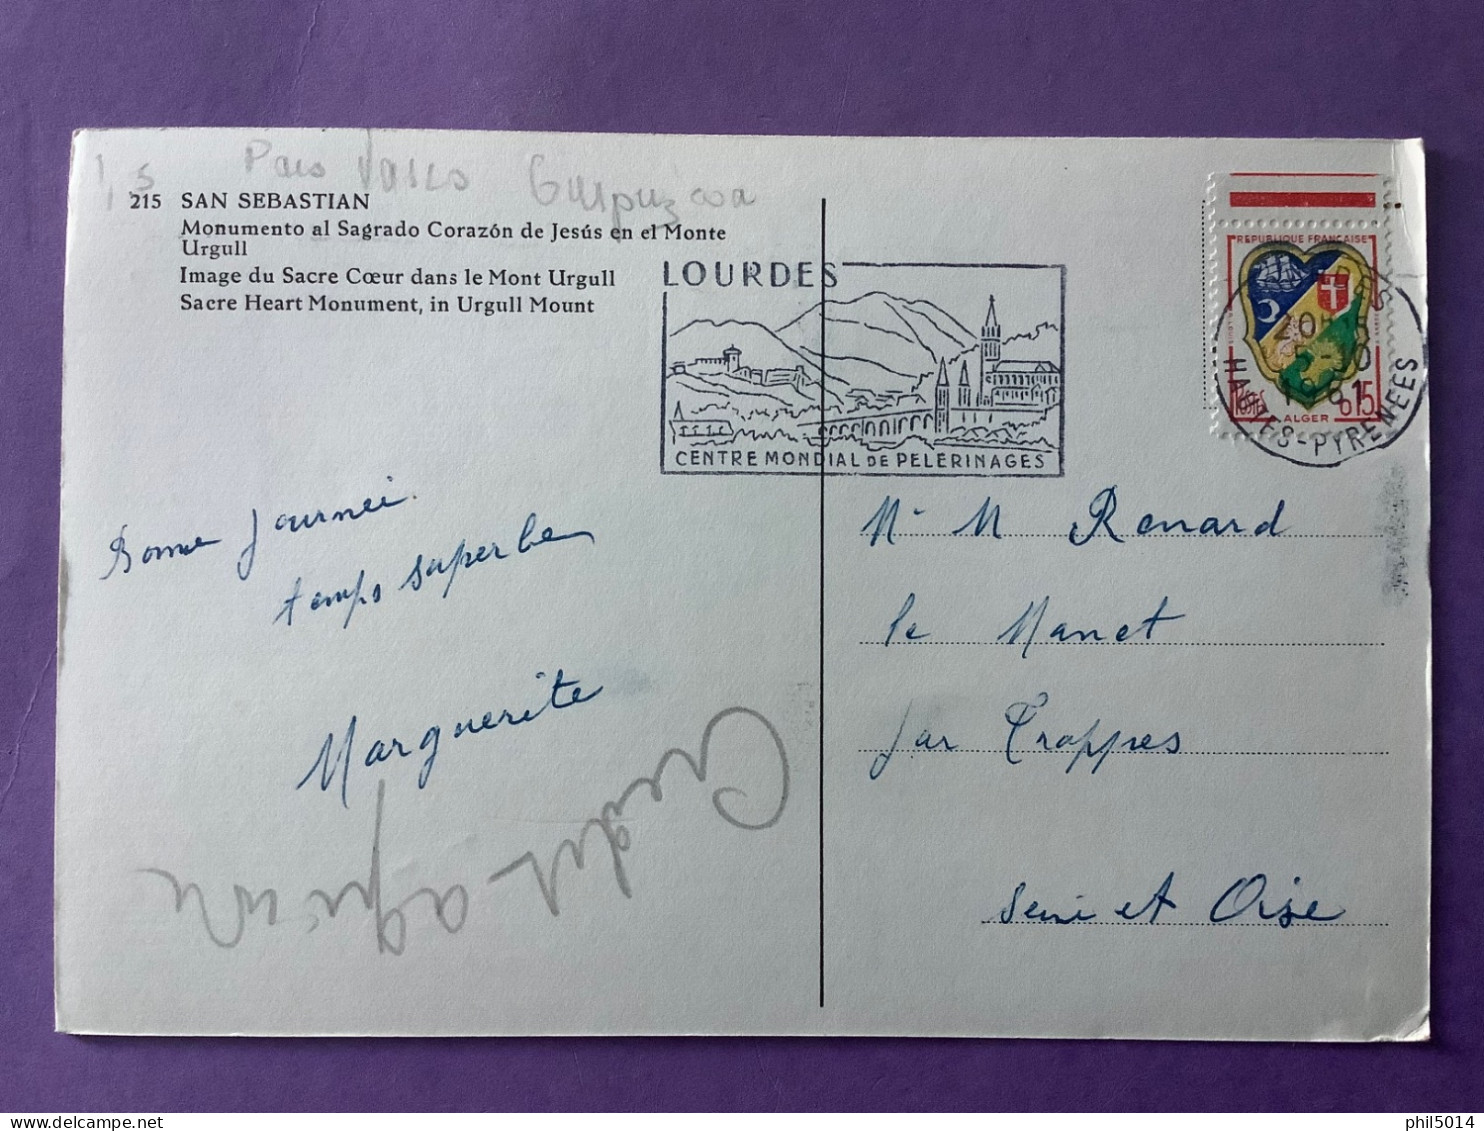 1,5 Pais Vasco Guipuzcoa
215 SAN SEBASTIAN
Monumento al Sagrado Corazón de Jesús en el Monte
Urgull
Image du Sacre Cœur dans le Mont Urgull
Sacre Heart Monument, in Urgull Mount
LOURDES
CENTRE MONDIAL DE PELERINAGES
REPUBLIQUE FRANÇAISE
POSTES
ALGER
0,15
HAUTES-PYRENEES
Bonne journée
temps superbe
Marguerite
Credit agricole
Mr M Renard
le Manet
par Trappes
Seine et Oise
phil5014